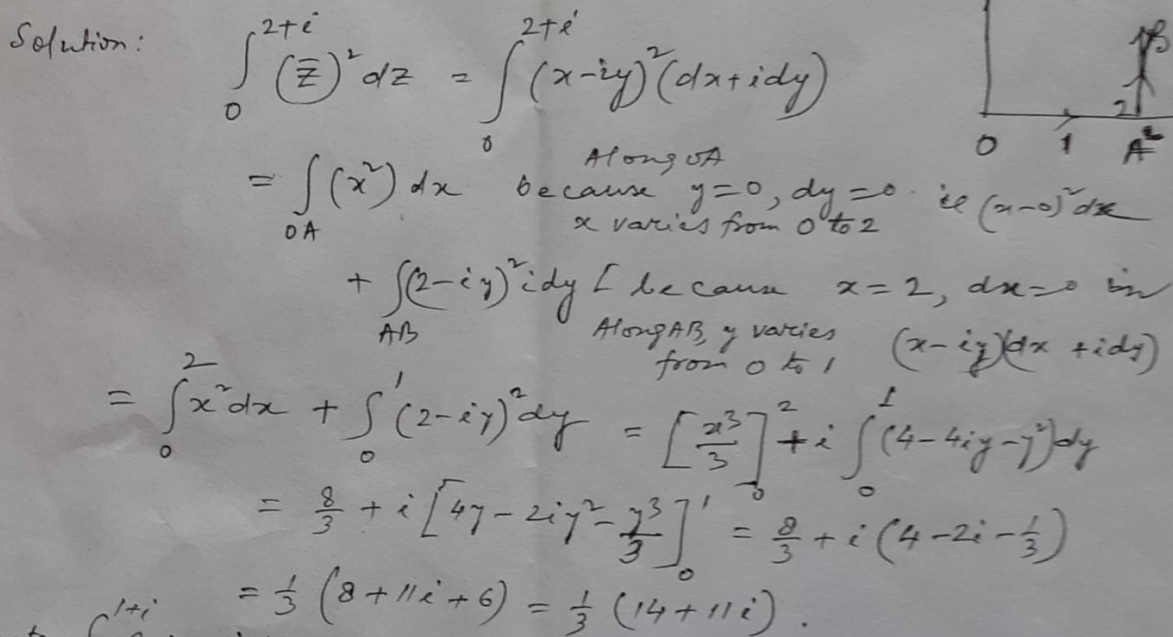 Solution: ∫₀^{2+i} (z̄)² dz = ∫₀^{2+i} (x-iy)² (dx+idy)
B
2
0 1 A 2
= ∫_{OA} (x²) dx because Along OA y=0, dy=0 ie (x-0)² dx
x varies from 0 to 2
+ ∫_{AB} (2-iy)² idy [ because x=2, dx=0 in
Along AB, y varies from 0 to 1 (x-iy)(dx+idy)
= ∫₀² x² dx + ∫₀¹ (2-iy)² dy = [x³/3]₀² + i ∫₀¹ (4-4iy-y²) dy
= 8/3 + i [4y - 2iy² - y³/3]₀¹ = 8/3 + i (4-2i-1/3)
= 1/3 (8+11i+6) = 1/3 (14+11i).
1+i